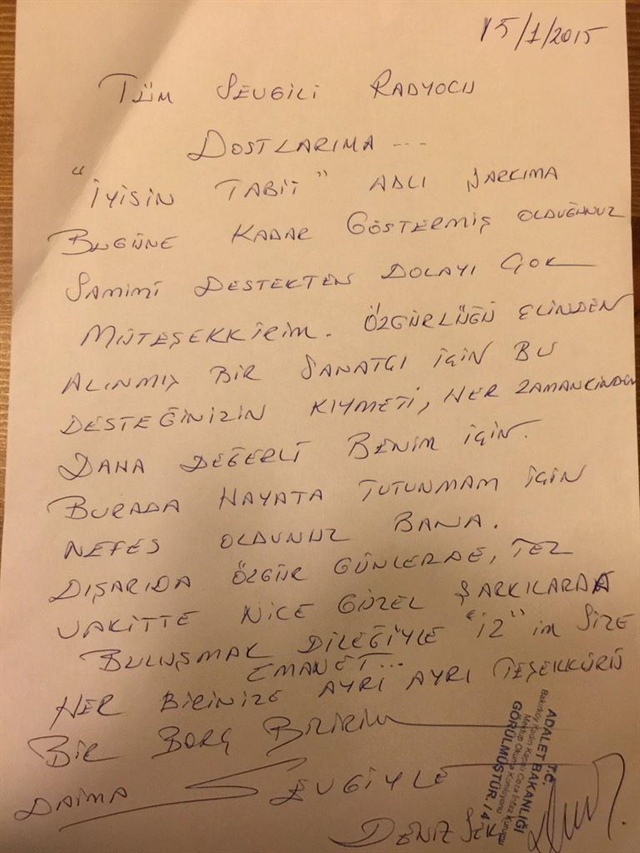 15/1/2015
TÜM SEVGİLİ RADYOCU
DOSTLARIMA ---
"İYİSİN TABİİ" ADLI ŞARKIMA
BUGÜNE KADAR GÖSTERMİŞ OLDUĞUNUZ
SAMİMİ DESTEKTEN DOLAYI ÇOK
MÜTEŞEKKİRİM. ÖZGÜRLÜĞÜ ELİNDEN
ALINMIŞ BİR SANATÇI İÇİN BU
DESTEĞİNİZİN KIYMETİ, HER ZAMANKİNDEN
DAHA DEĞERLİ BENİM İÇİN.
BURADA HAYATA TUTUNMAM İÇİN
NEFES OLDUNUZ BANA.
DIŞARIDA ÖZGÜR GÜNLERDE, TEZ
VAKİTTE NİCE GÜZEL ŞARKILARDA
BULUŞMAK DİLEĞİYLE "İZ" im SİZE
EMANET...
HER BİRİNİZE AYRI AYRI TEŞEKKÜRÜ
BİR BORÇ BİLİRİM
DAİMA SEVGİYLE
DENİZ SEKİ
T.C.
ADALET BAKANLIĞI
Bakırköy Kadın Kapalı Ceza İnfaz Kurumu
Mektup Okuma Komisyonu
GÖRÜLMÜŞTÜR. / 4